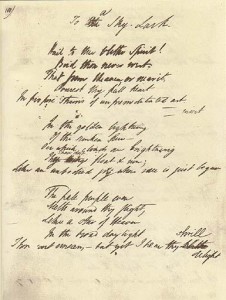 To a Sky-Lark
Hail to thee blithe Spirit!
Bird thou never wert
That from Heaven, or near it
Pourest thy full heart
In profuse strains of unpremeditated art
In the golden lightning
Of the sunken Sun
O'er which clouds are brightning
float & run;
Like an unbodied joy whose race is just begun
The pale purple even
Melts around thy flight,
Like a star of Heaven
In the broad day light
shrill
Thou art unseen,— but yet I hear thy
delight